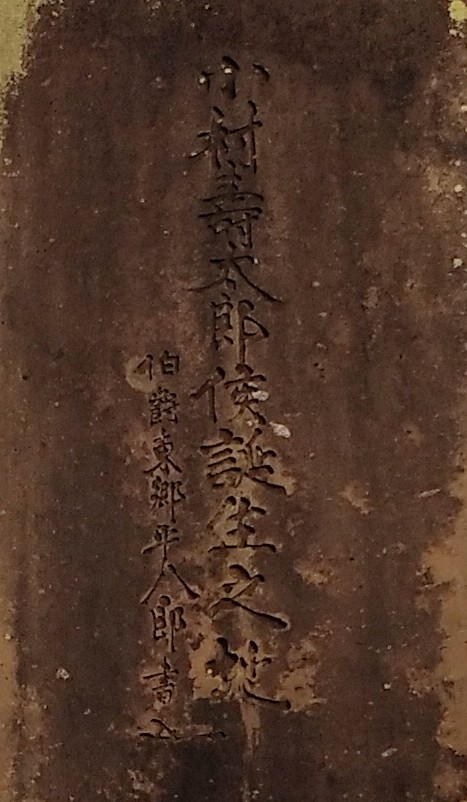 小村壽太郎侯誕生之地
伯爵東郷平八郎書之